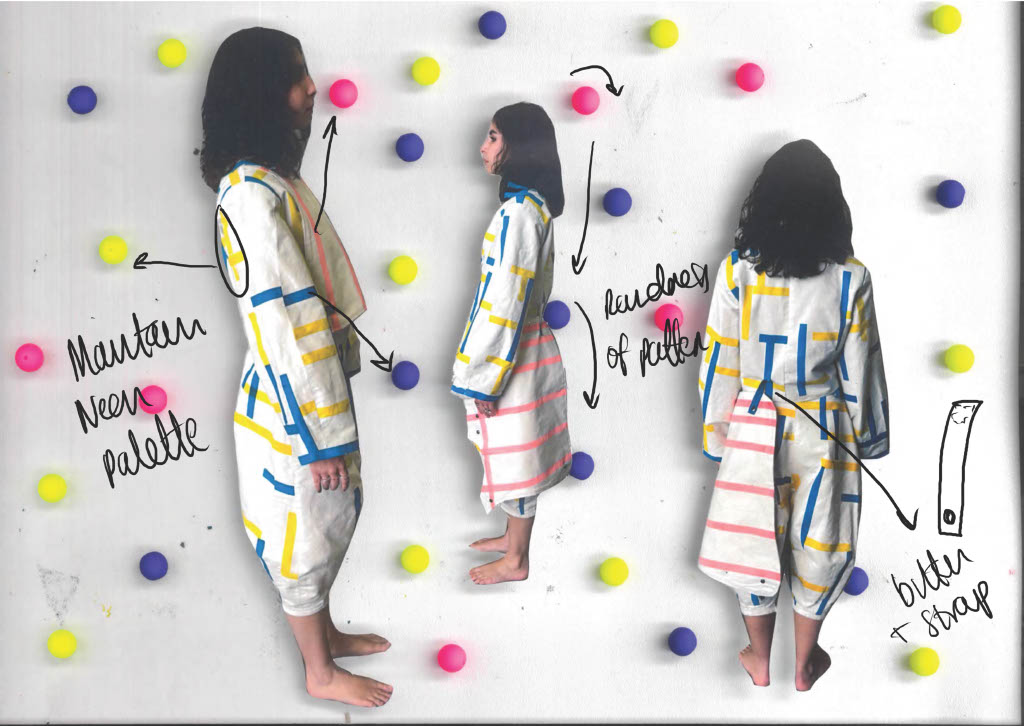 Maintain
Neon
palette
Randomness
of pattern
button
+ strap